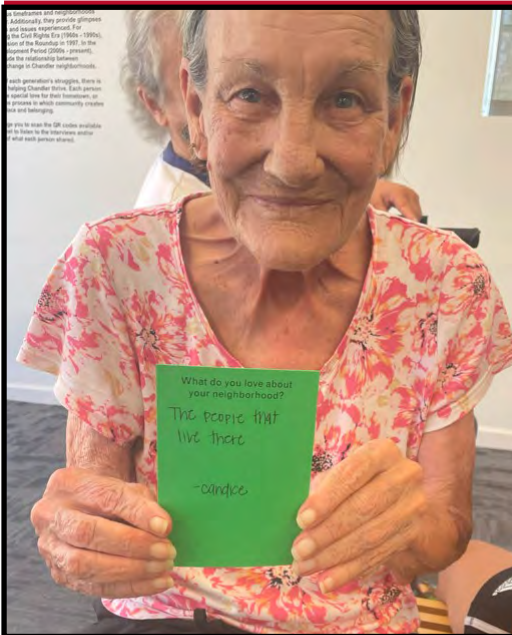 us timeframes and neighborhoods
. Additionally, they provide glimpses
and issues experienced. For
g the Civil Rights Era (1960s - 1990s),
sion of the Roundup in 1997. In the
lopment Period (2000s - present),
ude the relationship between
change in Chandler neighborhoods.
each generation's struggles, there is
helping Chandler thrive. Each person
special love for their hometown, or
process in which community creates
and belonging.
ge you to scan the QR codes available
to listen to the interviews and/or
of what each person shared.
What do you love about
your neighborhood?
The people that
live there
-candice